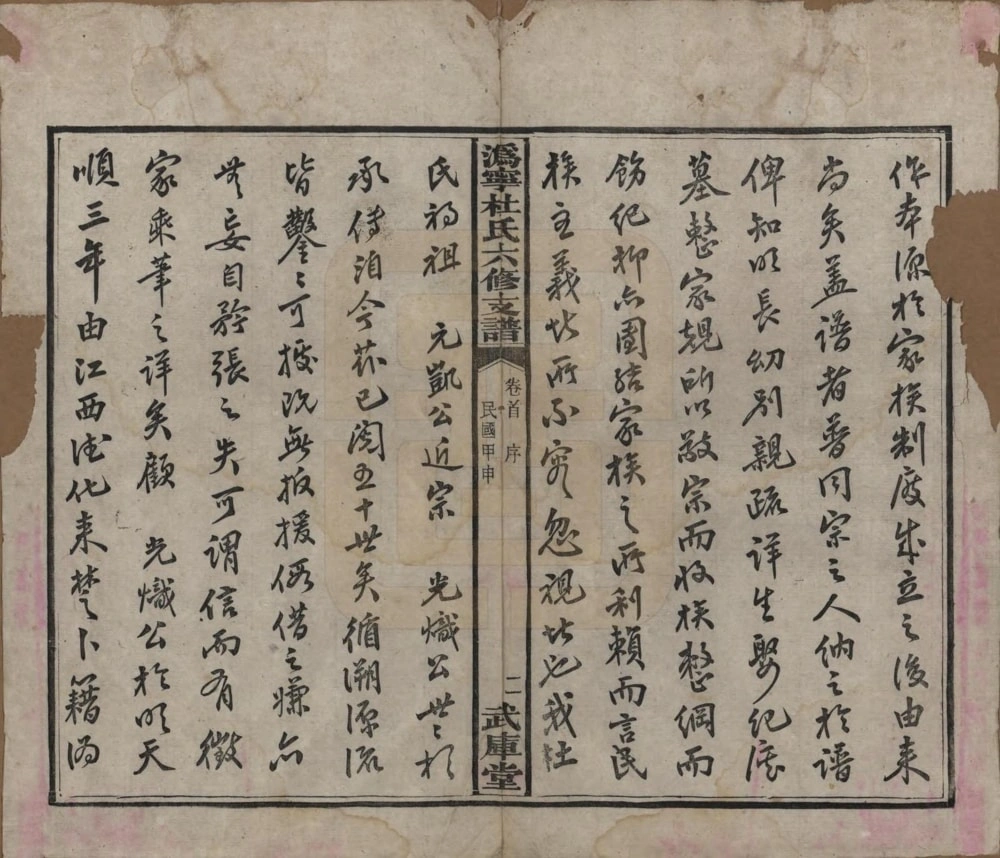 作本源於家族制度成立之後由来
尚矣盖谱者普同宗之人纳之於譜
俾知明長幼别親疏详生娶纪落
墓整家規所以敬宗而收族整綱而
飭纪抑亦團结家族之所利賴而言民
族主義皆所不容忽視者也我杜
溈寧杜氏六修支譜
卷首 序
民國甲申
二
武庫堂
氏初祖 元凱公近宗 光熾公世世相
承傳洎今兹已阅五十世矣循溯源流
皆鑿鑿可據既無扳援假借之嫌亦
無妄自矜張之失可謂信而有徵
家乘筆之详矣顧 光熾公於明天
順三年由江西德化来楚卜籍溈